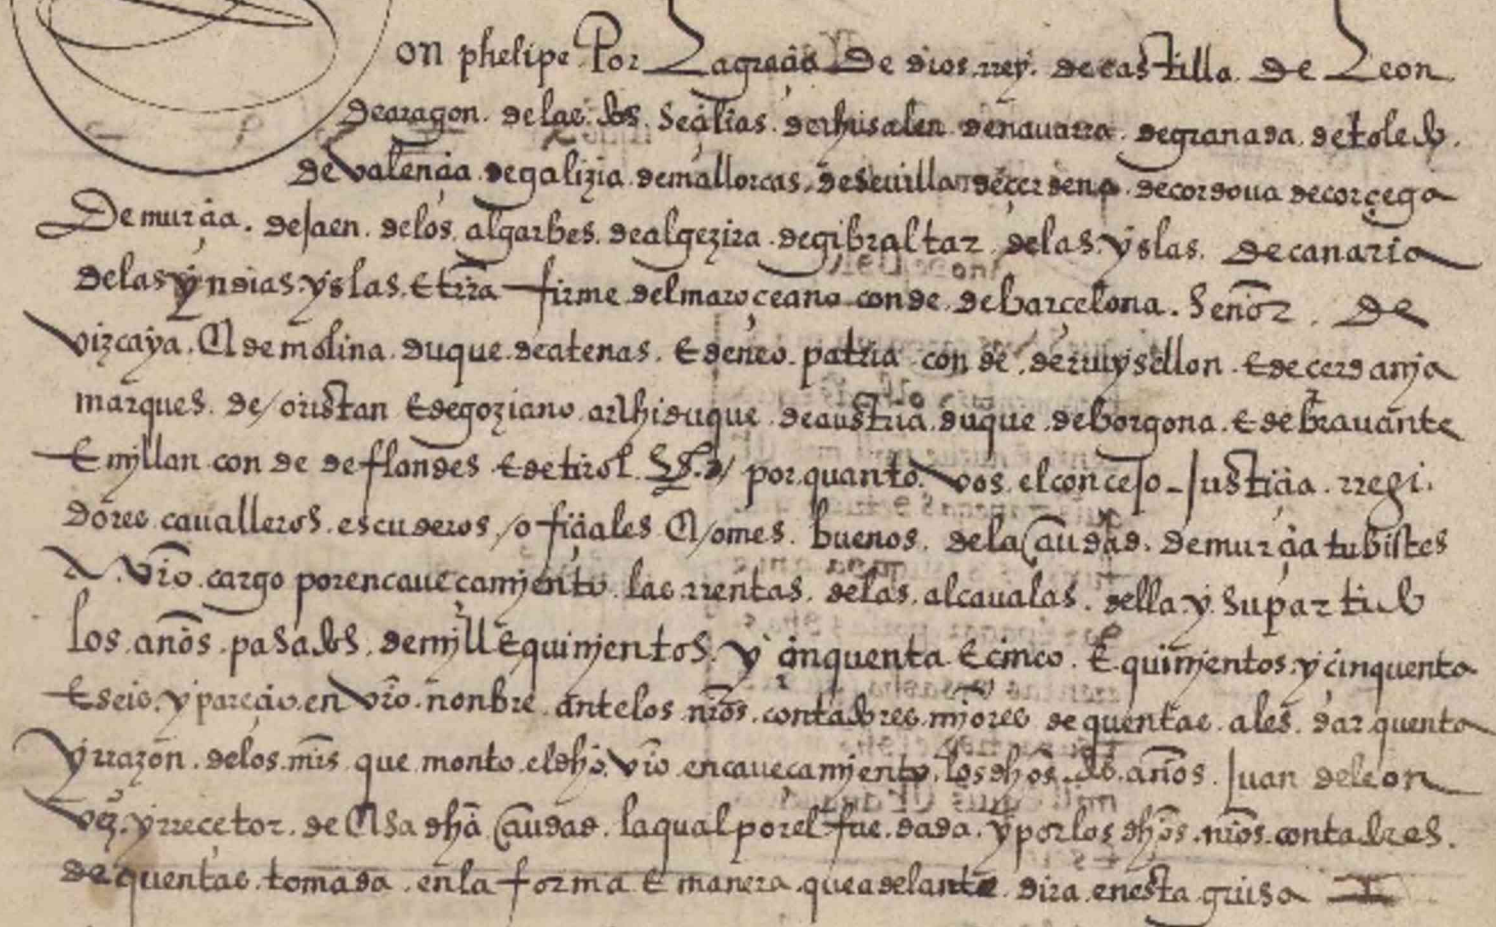 on phelipe Por La graçia De dios rrey. de castilla. de Leon
de aragon. de las. dos. Seçilias. de rhusalen de nauarra. de granada. de toledo.
de Valençia de galizia. de mallorcas, de seuilla de çerdena. de cordoua de corçega
De murçia. de Jaen. de los. algarbes. de algezira. de gibraltar. de las. yslas. de canaria
de las yndias. yslas. E trra firme del mar oçeano conde. de barcelona. Señor. de
vizcaya. E de molina. duque. de atenas. E de neo patria conde. de rruysellon. E de cerdania
marques. de / oristan E de goziano. archiduque de austria. duque. de borgona. E de brauante
E myllan. conde de flandes E de tirol. &. por quanto. Vos. el conçejo - Justiçia. rregi.
dores. caualleros. escuderos, / ofiçiales E / omes. buenos. de la Ciudad. de murçia tubistes
A. Vro. cargo por encaueçamyento. las rrentas. de las. alcaualas. della y su partido
los. años. pasados. de myll E quinyentos. y çinquenta E cinco. E quinyentos. y cinquenta
E seis. y pareçio. en Vro. nonbre. ante los nros. contadores. mjores de quentas. a les. dar quenta
y rrazon. de los. mrs que monto. el dho. vro encaueçamyento. los dhos. dos. años. Juan de leon
Vez. y rreçetor. de Esa dha Ciudad. la qual por el fue. dada. y por los dhos. nros. contadores.
de quentas. tomada. en la forma E manera. que adelante dira. en esta guisa